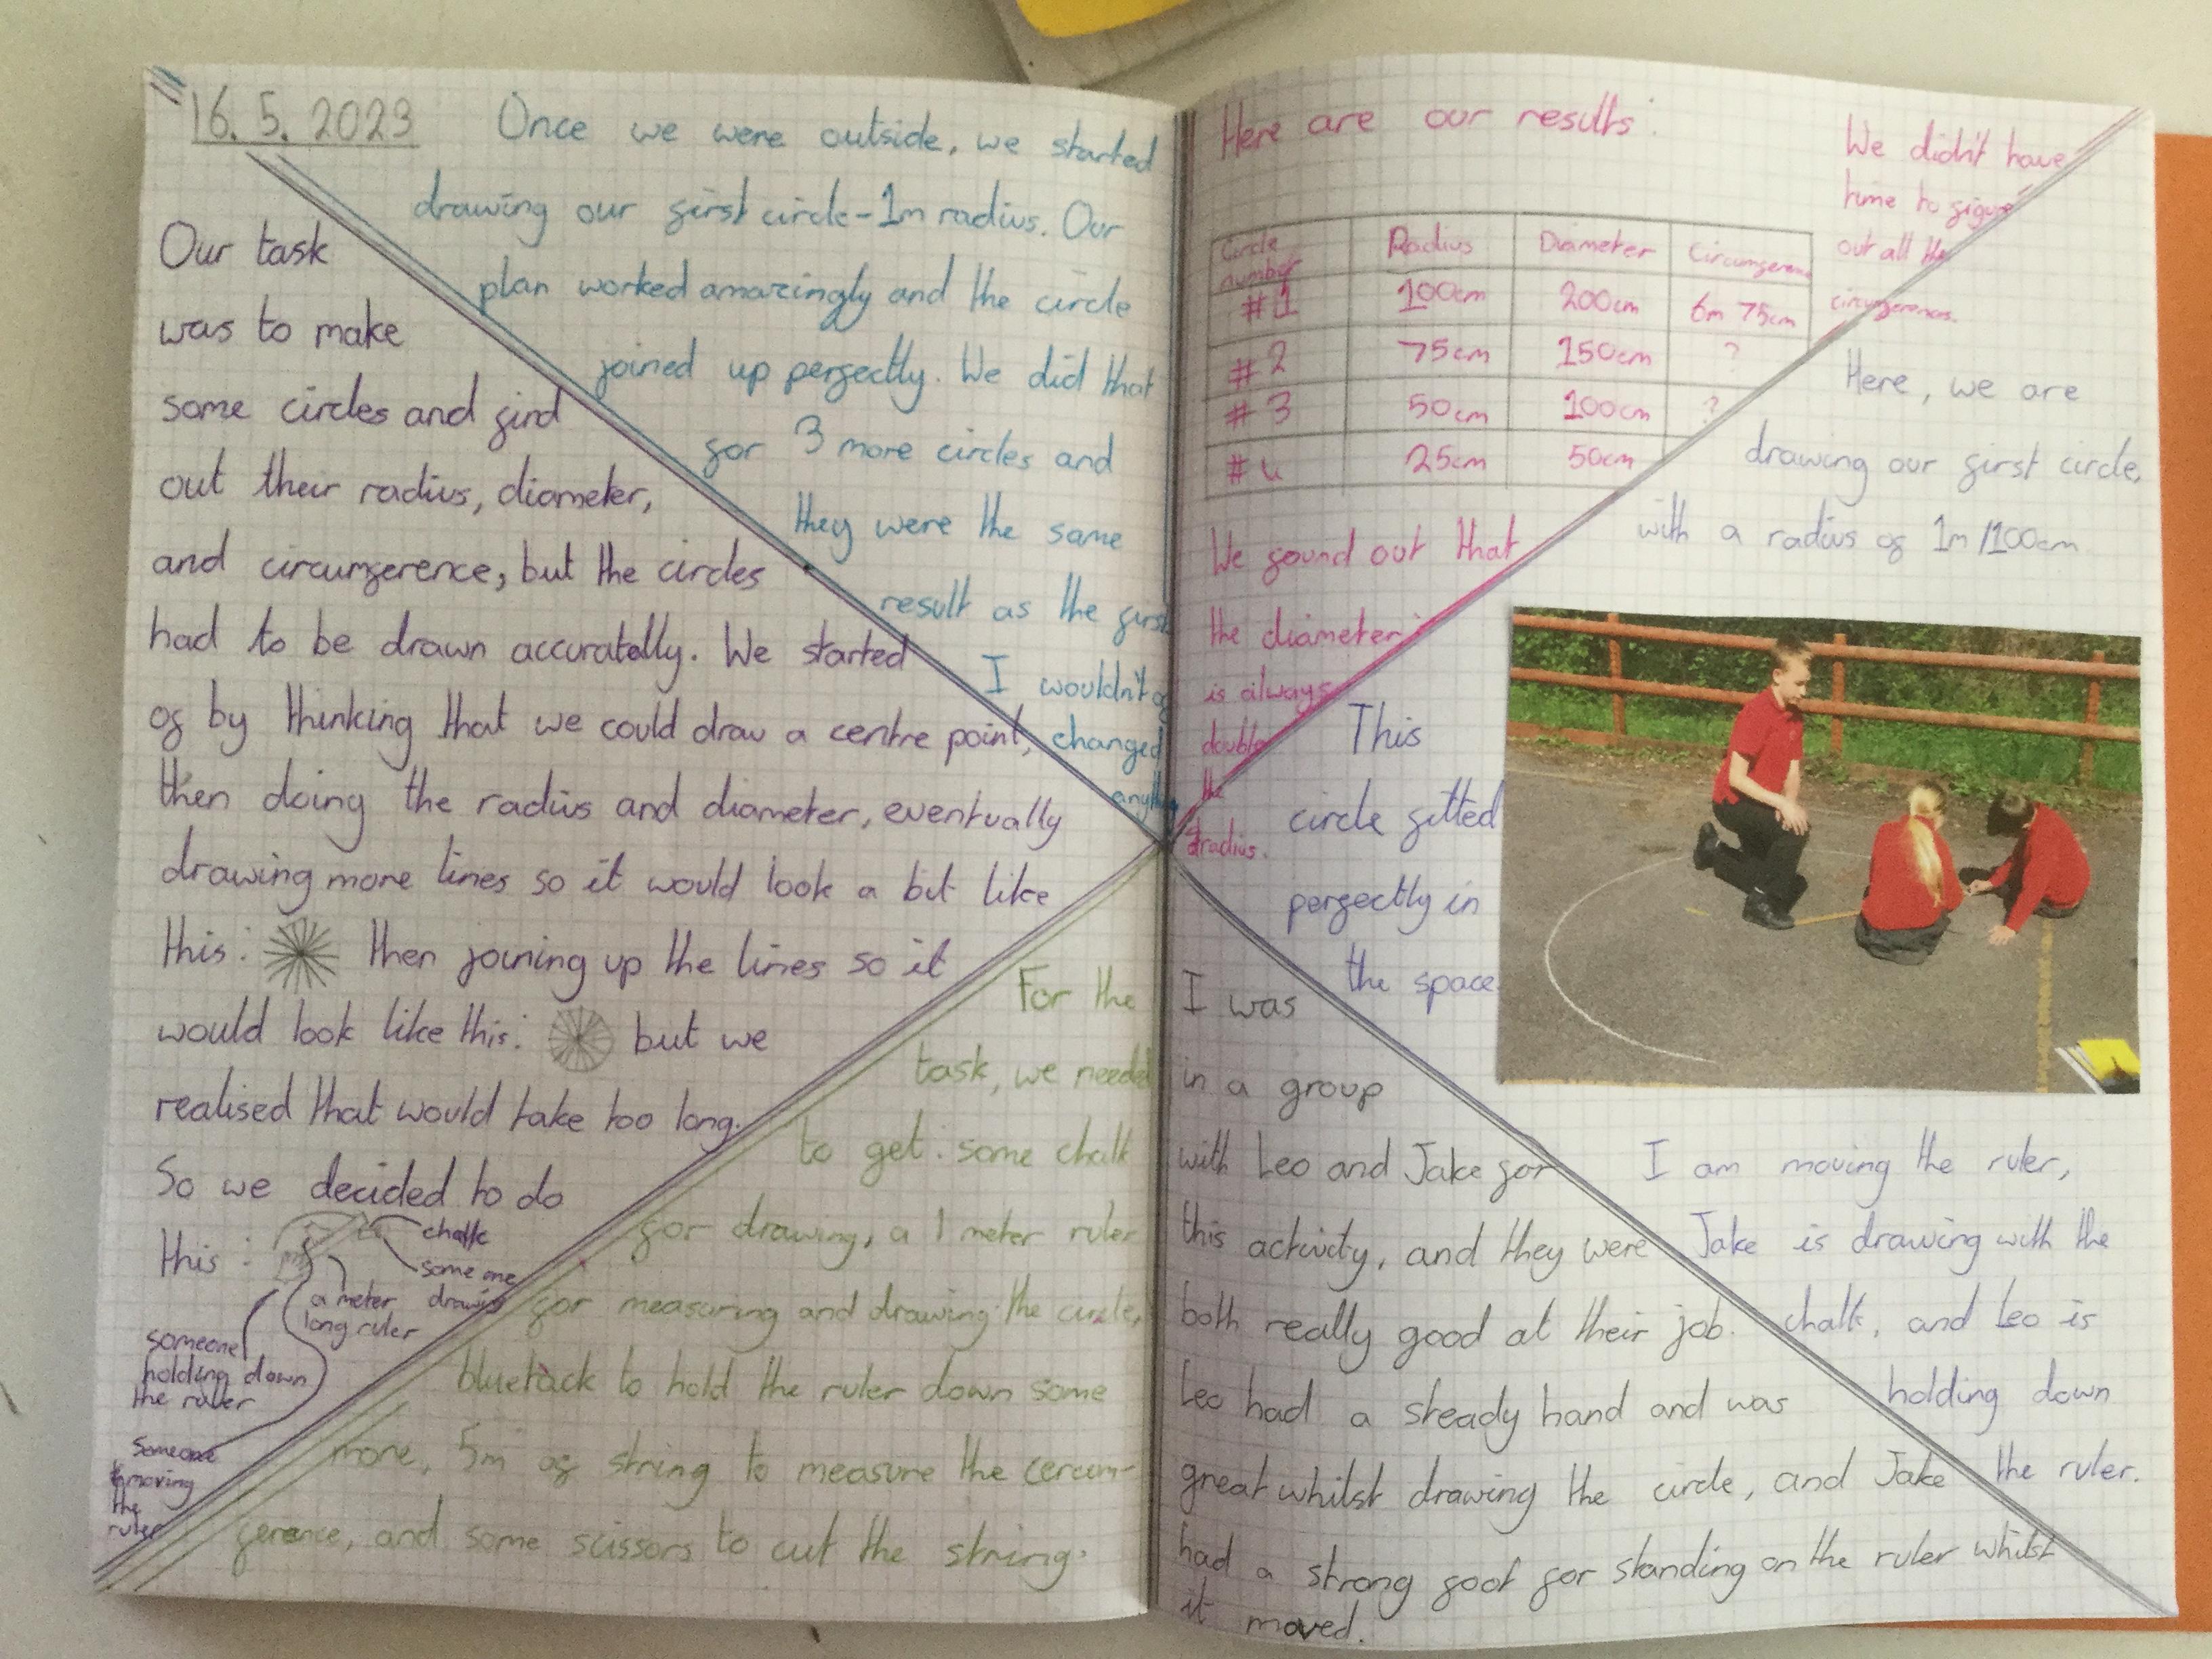 16. 5. 2023
Our task
was to make
some circles and find
out their radius, diameter,
and circumference, but the circles
had to be drawn accuratelly. We started
of by thinking that we could draw a centre point,
then doing the radius and diameter, eventually
drawing more lines so it would look a bit like
this: then joining up the lines so it
would look like this: but we
realised that would take too long.
So we decided to do
this:
chalk
someone
drawing
a meter
long ruler
someone
holding down
the ruler
someone
moving
the
ruler
Once we were outside, we started
drawing our first circle - 1m radius. Our
plan worked amazingly and the circle
joined up perfectly. We did that
for 3 more circles and
they were the same
result as the first
I wouldn't of
changed
anything
For the
task, we needed
to get: some chalk
for drawing, a 1 meter ruler
for measuring and drawing the circle,
bluetack to hold the ruler down some
more, 5m of string to measure the cercum-
ference, and some scissors to cut the string.
Here are our results:
Circle number Radius Diameter Circumference
#1 100cm 200cm 6m 75cm
#2 75cm 150cm ?
#3 50cm 100cm ?
#4 25cm 50cm
We found out that
the diameter
is always
double
the
radius.
We didn't have
time to figure
out all the
circumferences.
Here, we are
drawing our first circle,
with a radius of 1m/100cm
This
circle fitted
perfectly in
the space.
I am moving the ruler,
Jake is drawing with the
chalk, and Leo is
holding down
the ruler.
I was
in a group
with Leo and Jake for
this activity, and they were
both really good at their job.
Leo had a steady hand and was
great whilst drawing the circle, and Jake
had a strong foot for standing on the ruler whilst
it moved.